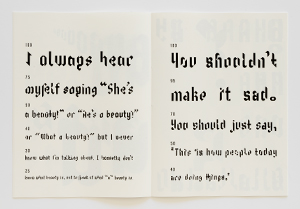 I always hear
myself saying “She’s
a beauty!” or “He’s a beauty!”
or “What a beauty!” but I never
know what I’m talking about. I honestly don’t
know what beauty is, not to speak of what “a” beauty is.
You shouldn’t
make it sad.
You should just say,
“This is how people today
are doing things.”